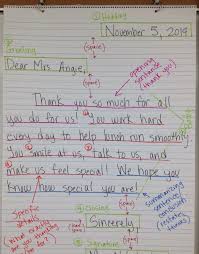 ① Heading
November 5, 2019
(space)
② Greeting
Dear Mrs. Angie,
(space)
opening sentence (thank you)
Thank you so much for all
you do for us! ① You work hard
every day to help lunch run smoothly.
② You smile at us, ③ talk to us, and
make us feel special! We hope you
know how special you are!
Specific details
(What exactly are you thanking
for?)
(space)
④ Closing
Sincerely,
(space)
⑤ Signature
summarizing sentence/
conclusion
(restate thanks)